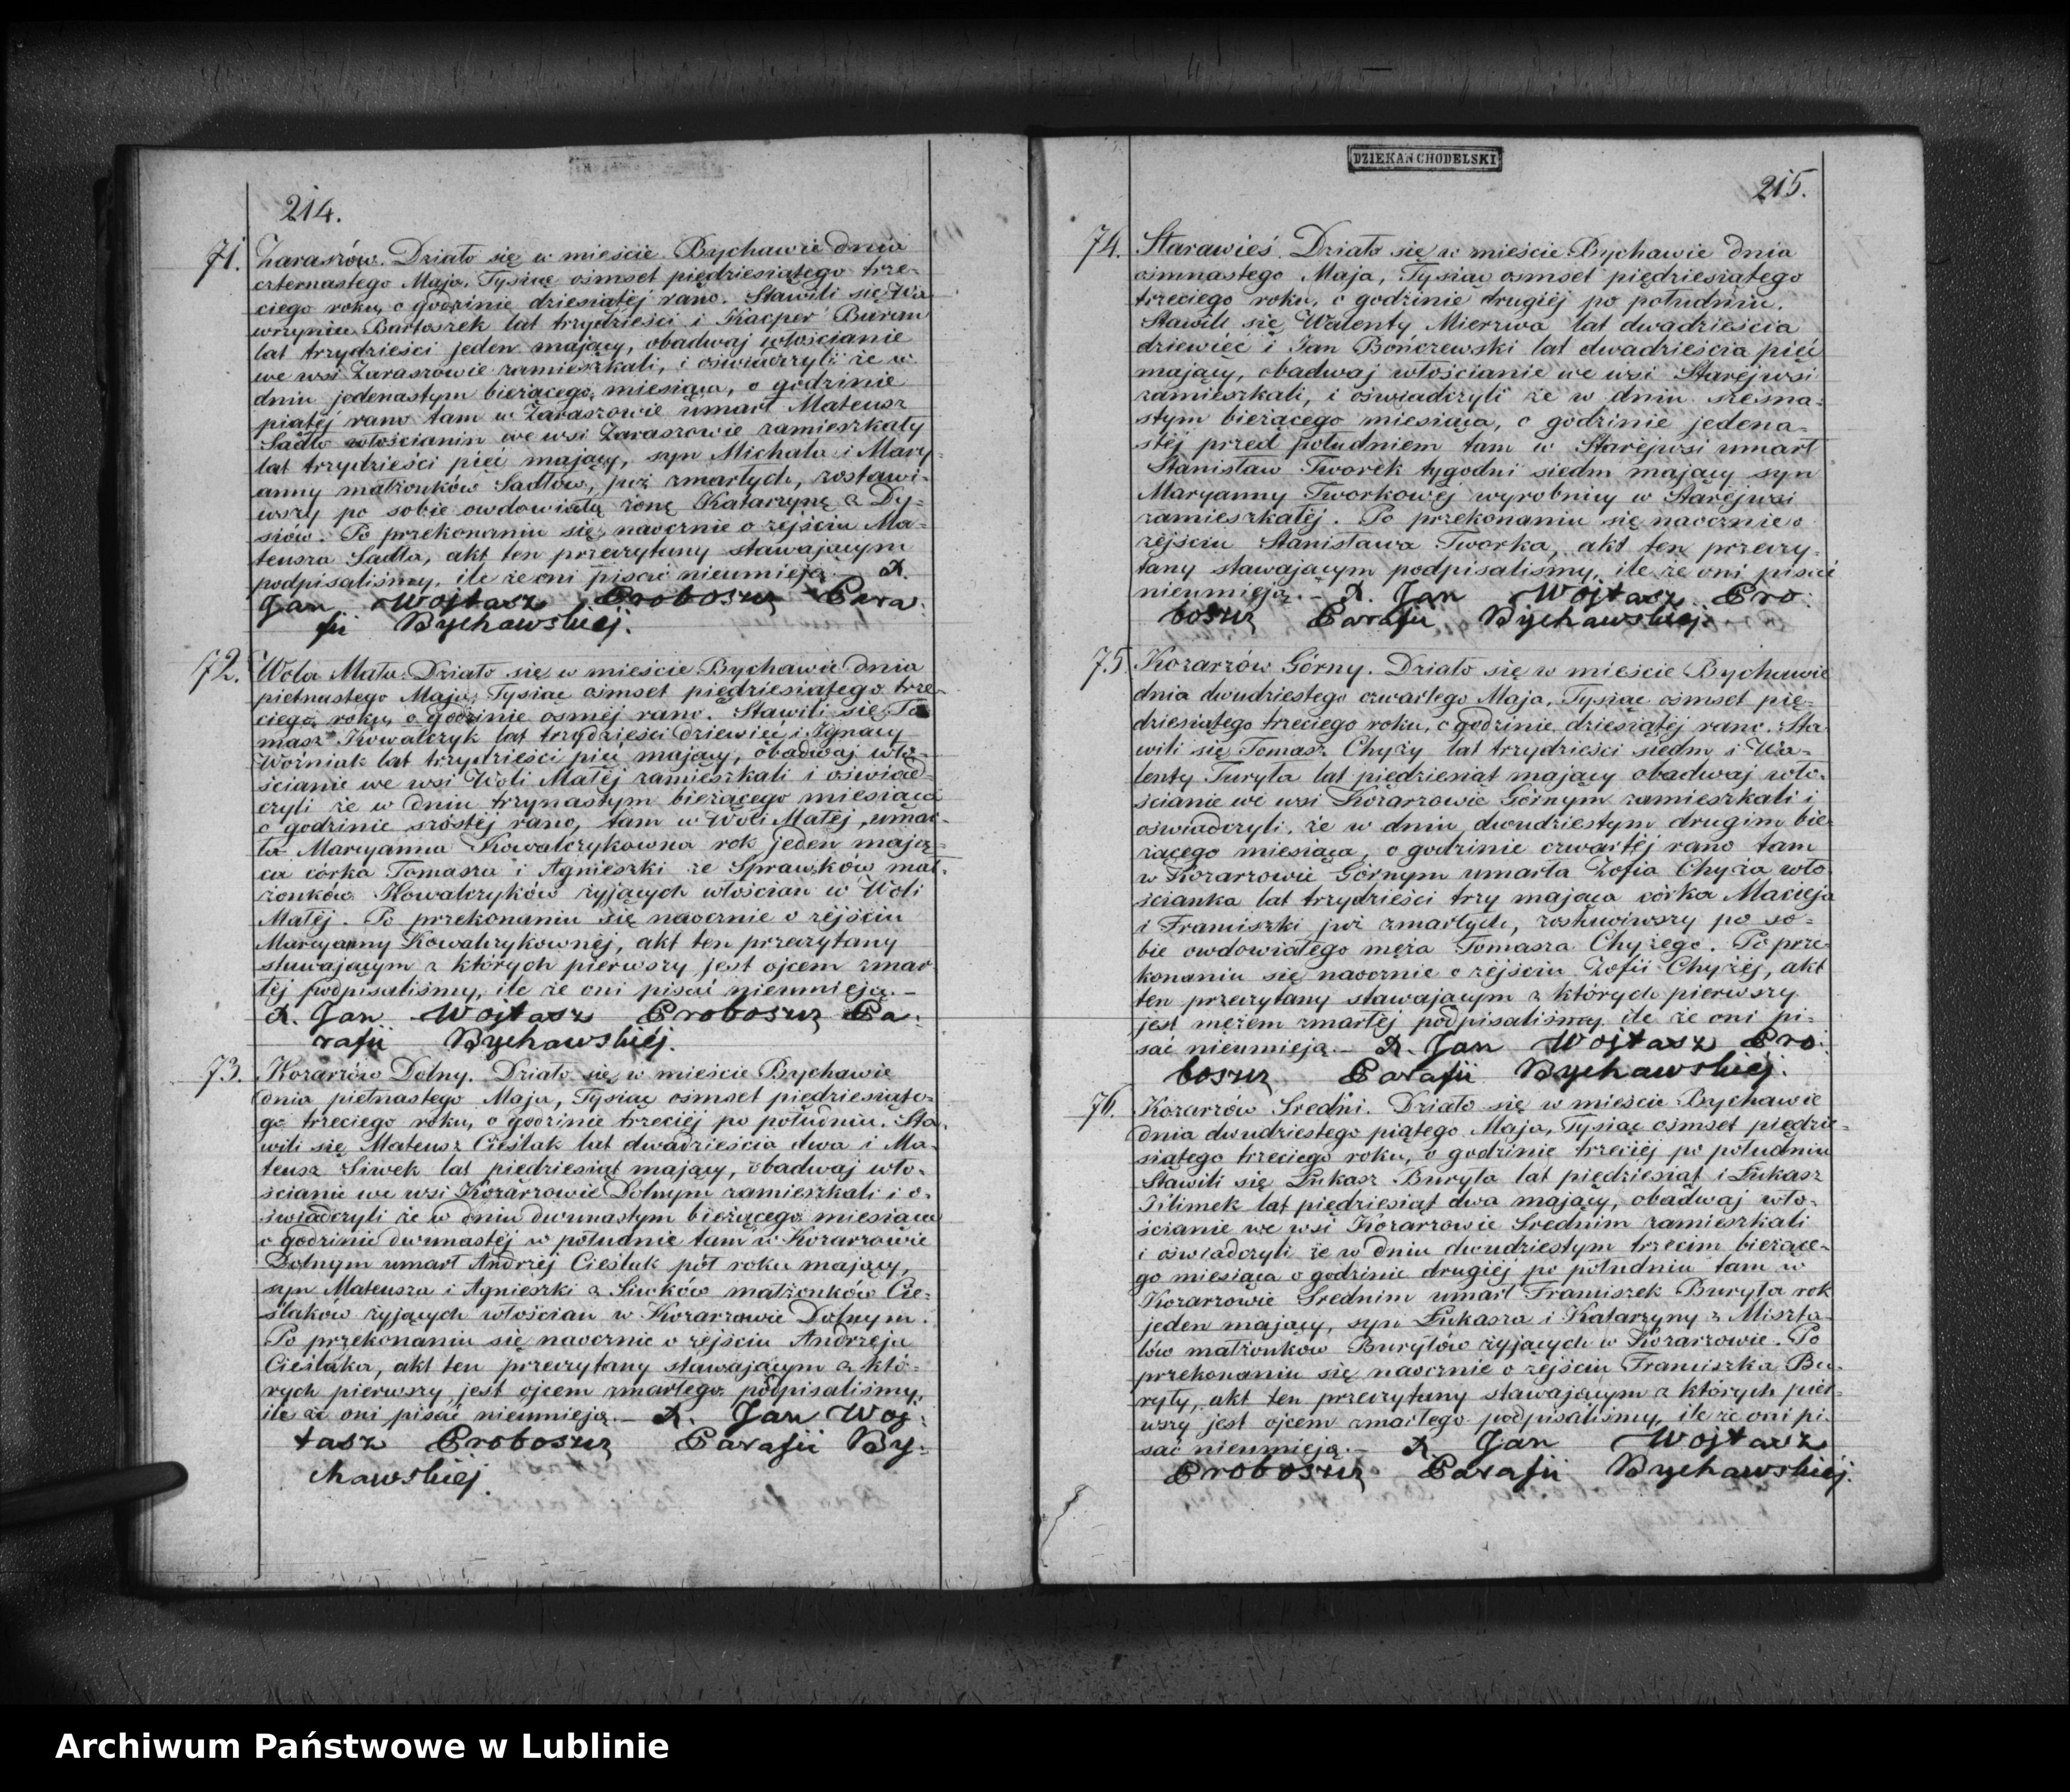 214.
71. Zaraszów. Działo się w mieście Bychawie dnia
czternastego Maja, Tysiąc ośmset piędziesiątego trze-
ciego roku, o godzinie dziesiątéj rano. Stawili się Wa
wrzyniec Bartoszek lat trzydzieści i Kacper Buram
lat trzydzieści jeden mający, obadwaj włościanie
we wsi Zaraszowie zamieszkali, i oświadczyli że w
dniu jedenastym bieżącego miesiąca, o godzinie
piątéj rano tam w Zaraszowie umarł Mateusz
Sadło włościanin we wsi Zaraszowie zamieszkały
lat trzydzieści pięć mający, syn Michała i Mary-
anny małżonków Sadłów, już zmarłych, zostawi-
wszy po sobie owdowiałą żonę Katarzynę z Dy-
siów. Po przekonaniu się naocznie o zejściu Ma-
teusza Sadła, akt ten przeczytany stawającym
podpisaliśmy, ile że oni pisać nieumieją. X.
Jan Wojtasz Proboszcz Para-
fii Bychawskiej.
72. Wola Mała. Działo się w mieście Bychawie dnia
piętnastego Maja, Tysiąc ośmset piędziesiątego trze-
ciego roku, o godzinie osméj rano. Stawili się To
masz Kowalczyk lat trzydzieści dziewięć i Ignacy
Woźniak lat trzydzieści pięć mający, obadwaj wło-
ścianie we wsi Woli Małéj zamieszkali i oświad-
czyli że w dniu trzynastym bieżącego miesiąca
o godzinie szóstéj rano, tam w Woli Małéj, umar-
ła Maryanna Kowalczykowna rok jeden mają-
ca córka Tomasza i Agnieszki ze Sprawków mał-
żonków Kowalczyków żyjących włościan w Woli
Małéj. Po przekonaniu się naocznie o zéjściu
Maryanny Kowalczykownéj, akt ten przeczytany
stawającym z których pierwszy jest ojcem zmar-
łéj podpisaliśmy, ile że oni pisać nieumieją.—
X. Jan Wojtasz Proboszcz Pa-
rafii Bychawskiéj.
73. Kozarzów Dolny. Działo się w mieście Bychawie
dnia piętnastego Maja, Tysiąc ośmset piędziesiąte-
go trzeciego roku, o godzinie trzeciéj po południu. Sta-
wili się Mateusz Cieślak lat dwadzieścia dwa i Ma-
teusz Siwek lat piędziesiąt mający, obadwaj wło-
ścianie we wsi Kozarzowie Dolnym zamieszkali i o-
świadczyli że w dniu dwunastym bieżącego miesiąca
o godzinie dwunastéj w południe tam w Kozarzowie
Dolnym umarł Andrzéj Cieślak pół roku mający,
syn Mateusza i Agnieszki z Siwków małżonków Cie-
ślaków żyjących włościan w Kozarzowie Dolnym.
Po przekonaniu się naocznie o zejściu Andrzeja
Cieślaka, akt ten przeczytany stawającym z któ-
rych pierwszy jest ojcem zmarłego podpisaliśmy,
ile że oni pisać nieumieją.— X. Jan Woj-
tasz Proboszcz Parafii By-
chawskiej.
DZIEKAN CHODELSKI
215.
74. Starawieś. Działo się w mieście Bychawie dnia
ośmnastego Maja, Tysiąc osmset piędziesiątego
trzeciego roku, o godzinie drugiéj po południu.
Stawili się Walenty Mierzwa lat dwadzieścia
dziewięć i Jan Bończewski lat dwadzieścia pięć
mający, obadwaj włościanie we wsi Staréjwsi
zamieszkali, i oświadczyli że w dniu szesna-
stym bieżącego miesiąca, o godzinie jedena-
stéj przed południem tam w Staréjwsi umarł
Stanisław Tworek tygodni siedm mający syn
Maryanny Tworkowéj wyrobnicy w Staréjwsi
zamieszkałéj. Po przekonaniu się naocznie o
zejściu Stanisława Tworka, akt ten przeczy-
tany stawającym podpisaliśmy, ile że oni pisać
nieumieją.— X. Jan Wojtasz Pro-
boszcz Parafii Bychawskiej.
75. Kozarzów Górny. Działo się w mieście Bychawie
dnia dwudziestego czwartego Maja, Tysiąc ośmset pię-
dziesiątego trzeciego roku, o godzinie dziesiątéj rano. Sta
wili się Tomasz Chyży lat trzydzieści siedm i Wa-
lenty Turyła lat piędziesiąt mający obadwaj wło-
ścianie we wsi Kozarzowie Górnym zamieszkali i
oświadczyli, że w dniu dwudziestym drugim bie-
żącego miesiąca, o godzinie czwartéj rano tam
w Kozarzowie Górnym umarła Zofia Chyża wło
ścianka lat trzydzieści trzy mająca córka Macieja
i Franciszki już zmarłych, zostawiwszy po so-
bie owdowiałego męża Tomasza Chyżego. Po prze-
konaniu się naocznie o zéjściu Zofii Chyżéj, akt
ten przeczytany stawającym z których pierwszy
jest mężem zmarłéj podpisaliśmy ile że oni pi-
sać nieumieją.— X. Jan Wojtasz Pro-
boszcz Parafii Bychawskiéj.
76. Kozarzów Sredni. Działo się w mieście Bychawie
dnia dwudziestego piątego Maja, Tysiąc ośmset piędzie-
siątego trzeciego roku, o godzinie trzeciéj po południu
Stawili się Łukasz Buryła lat piędziesiąt i Łukasz
Filimek lat piędziesiąt dwa mający, obadwaj wło-
ścianie we wsi Kozarzowie Srednim zamieszkali
i oświadczyli że w dniu dwudziestym trzecim bieżące-
go miesiąca o godzinie drugiéj po południu tam w
Kozarzowie Srednim umarł Franciszek Buryła rok
jeden mający, syn Łukasza i Katarzyny z Miszta-
lów małżonków Buryłów żyjących w Kozarzowie. Po
przekonaniu się naocznie o zéjściu Franciszka Bu-
ryły, akt ten przeczytany stawającym z których pier-
wszy jest ojcem zmarłego podpisaliśmy, ile że oni pi-
sać nieumieją.— X. Jan Wojtasz
Proboszcz Parafii Bychawskiéj.
Archiwum Państwowe w Lublinie